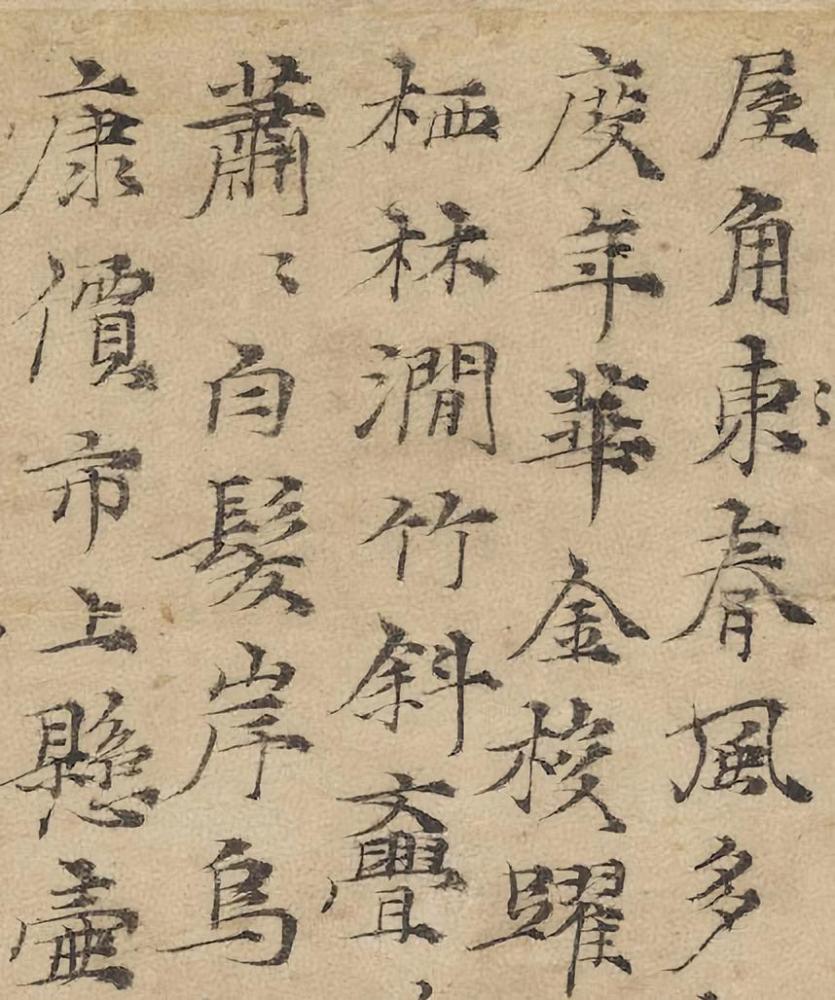 屋角東春風多
度年華金梭躍
栖林澗竹斜亹
蕭〻白髮岸烏
康價市上懸壺